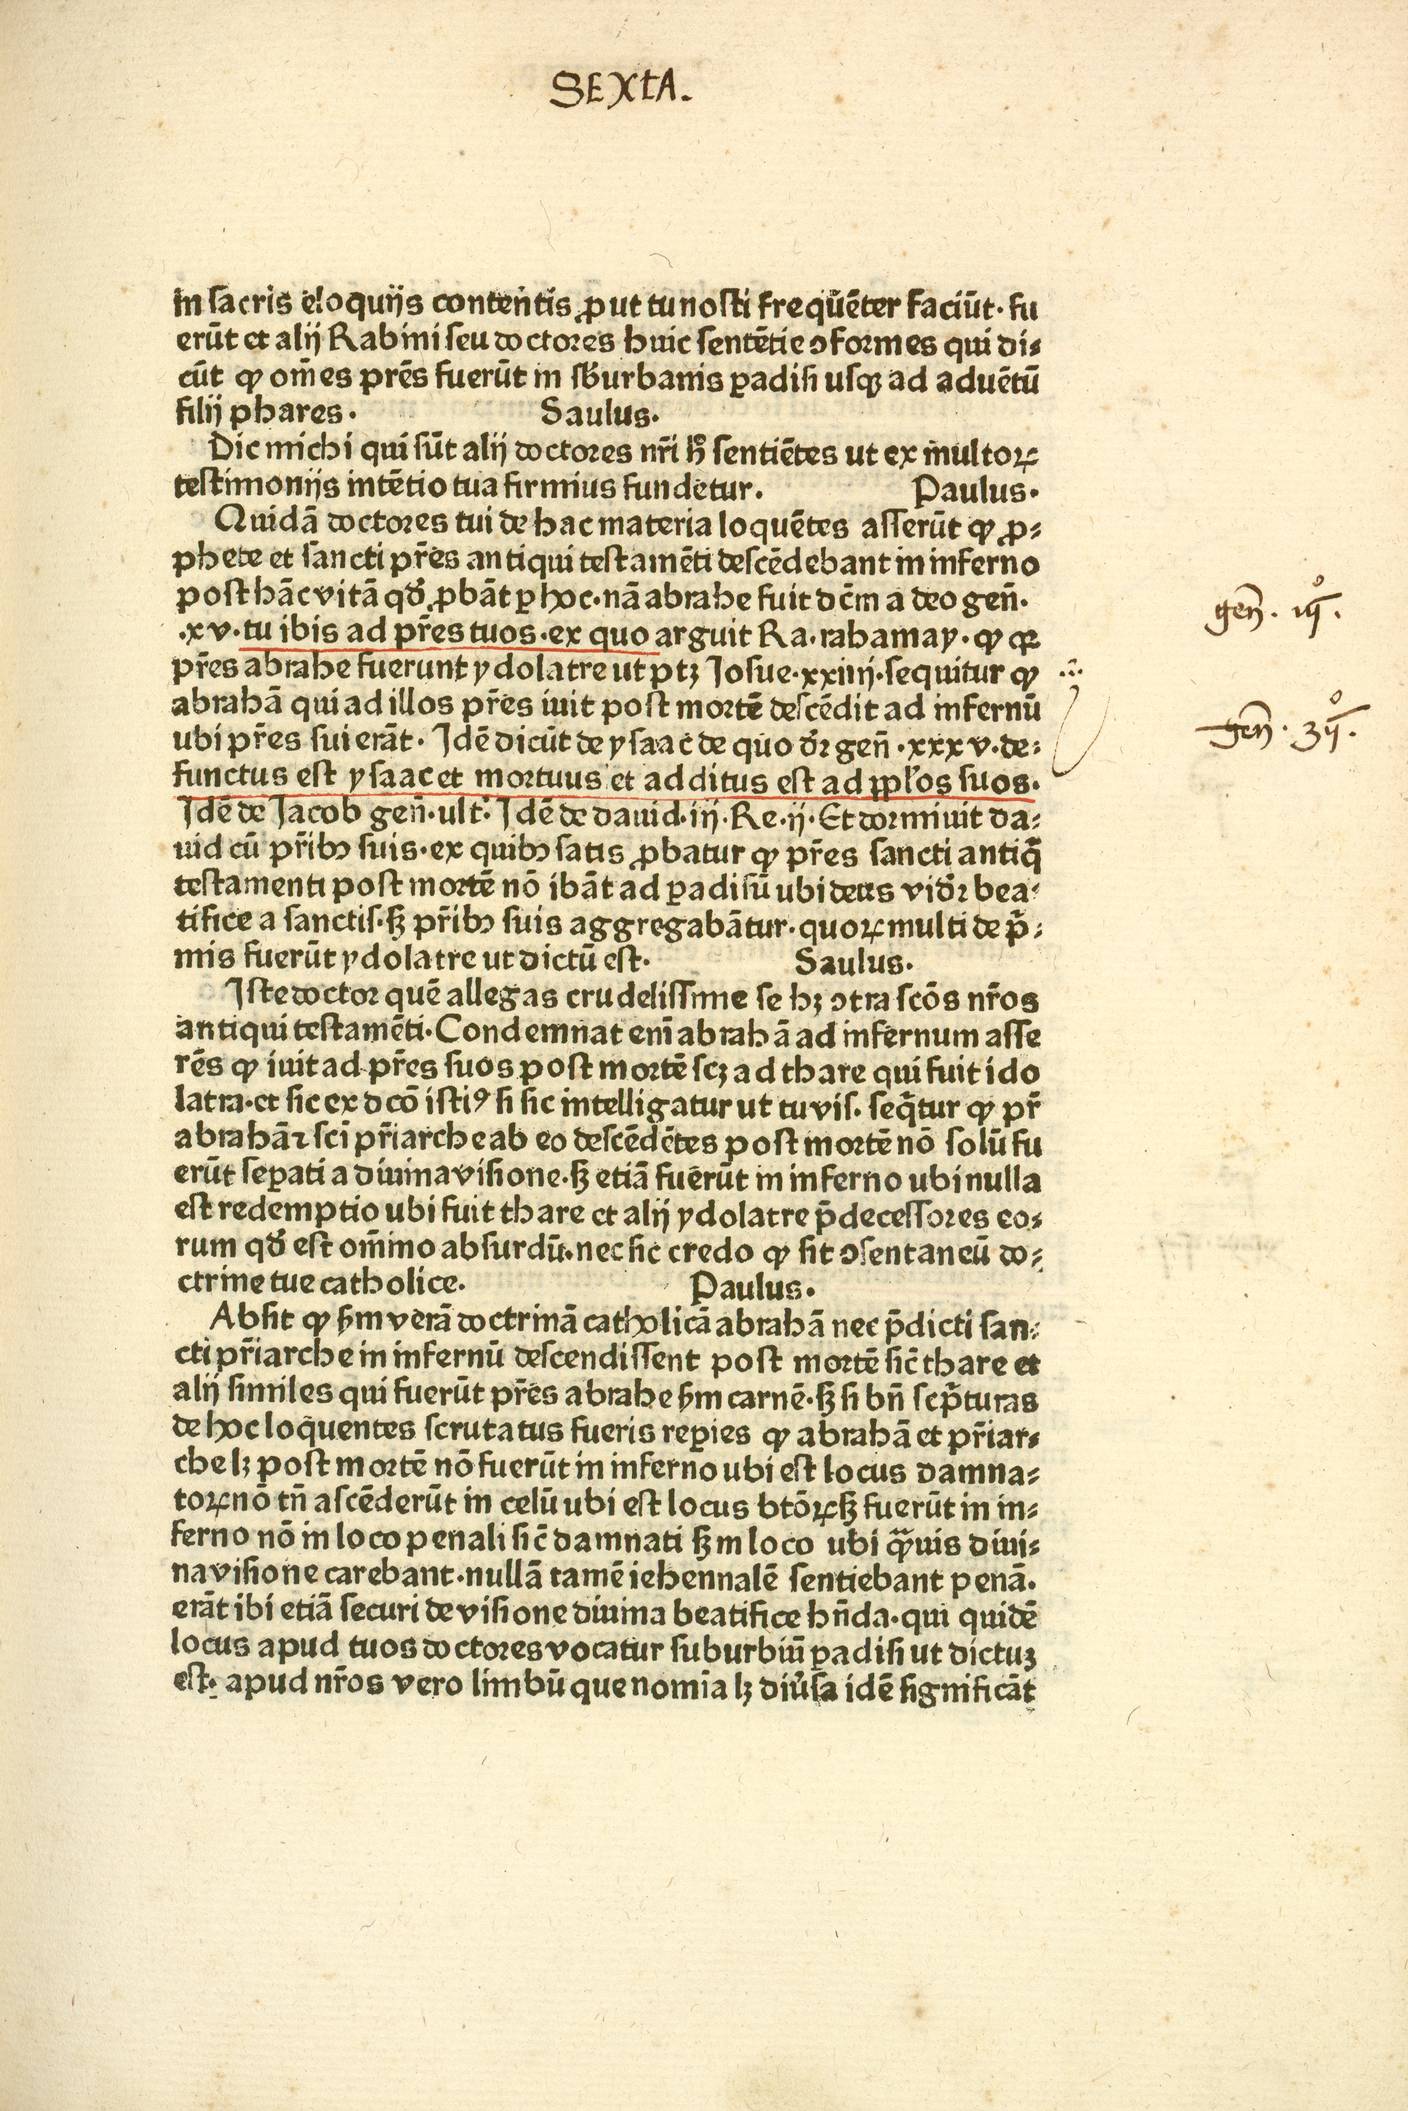 SEXTA.
in sacris eloquijs contentis ꝓut tu nosti frequēter faciūt· fu
erūt et alij Rabini seu doctores huic sentētie ɔformes qui di-
cūt ꝙ om̄es prēs fuerūt in sƀurbanis ꝑadisi usqꝫ ad aduētū
filij phares· Saulus·
Dic michi qui sūt alij doctores nr̄i h̄ sentiētes ut ex multoꝝ
testimonijs intētio tua firmius fundetur. Paulus·
Quidā doctores tui de hac materia loquētes asserūt ꝙ ꝓ-
phete et sancti prēs antiqui testamēti descēdebant in inferno
post hāc vitā qđ ꝓbāt ꝑ hoc· nā abrahe fuit dc̄m a deo gen̄·
·xv· tu ibis ad prēs tuos· ex quo arguit Ra· rahamay· ꝙ qꝛ
prēs abrahe fuerunt ydolatre ut ptꝫ Josue·xxiiij· sequitur ꝙ
abrahā qui ad illos prēs iuit post mortē descēdit ad infernū
ubi prēs sui erāt· Idē dicūt de ysaac de quo dr̄ gen̄·xxxv·de-
functus est ysaac et mortuus et additus est ad pp̄los suos·
Idē de Jacob gen̄·ult̄· Idē de dauid·iij·Re·ij· Et dormiuit da-
uid cū pr̄ibꝰ suis· ex quibꝰ satis ꝓbatur ꝙ prēs sancti antiq̄
testamenti post mortē nō ibāt ad ꝑadisū ubi deus vidr̄ bea-
tifice a sanctis· sꝫ pr̄ibꝰ suis aggregabātur· quoꝝ multi de p̄-
mis fuerūt ydolatre ut dictū est· Saulus·
Iste doctor quē allegas crudelissime se hꝫ ɔtra scōs nr̄os
antiqui testamēti· Condemnat enī abrahā ad infernum asse
rēs ꝙ iuit ad prēs suos post mortē scꝫ ad thare qui fuit ido
latra· et sic ex dcō istiꝰ si sic intelligatur ut tu vis· seq̄tur ꝙ pr̄
abrahā ⁊ scī pr̄iarche ab eo descēdētes post mortē nō solū fu
erūt seꝑati a diuina visione· sꝫ etiā fuerūt in inferno ubi nulla
est redemptio ubi fuit thare et alij ydolatre p̄decessores eo-
rum qđ est om̄ino absurdū· nec sic credo ꝙ sit ɔsentaneū do-
ctrine tue catholice· Paulus·
Absit ꝙ sꝫm verā doctrinā catholicā abrahā nec p̄dicti san-
cti pr̄iarche in infernū descendissent post mortē sic̄ thare et
alij similes qui fuerūt prēs abrahe sꝫm carnē· sꝫ si bn̄ scp̄turas
de hoc loquentes scrutatus fueris reꝑies ꝙ abrahā et pr̄iar-
che lꝫ post mortē nō fuerūt in inferno ubi est locus damna-
toꝝ nō tn̄ ascēderūt in celū ubi est locus btōꝝ sꝫ fuerūt in in-
ferno nō in loco penali sic̄ damnati sꝫ in loco ubi qͣuis diui-
na visione carebant· nullā tamē iehennalē sentiebant penā·
erāt ibi etiā securi de visione diuina beatifice hn̄da· qui quidē
locus apud tuos doctores vocatur suburbiū ꝑadisi ut dictuꝫ
est· apud nr̄os vero limbū que nomīa lꝫ diūsa idē significāt
gen̄·
gen̄·